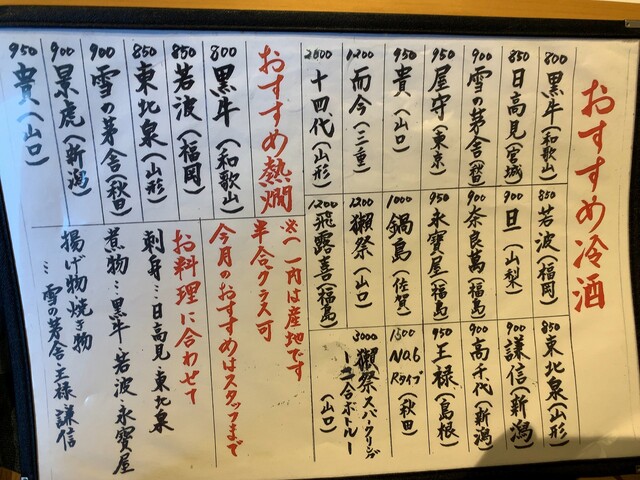 おすすめ冷酒
800 黒牛(和歌山)
850 日高見(宮城)
900 雪の茅舎(秋田)
950 屋守(東京)
950 貴(山口)
1200 而今(三重)
2000 十四代(山形)
850 若波(福岡)
900 旦(山梨)
900 奈良萬(福島)
950 永寶屋(福島)
1000 鍋島(佐賀)
1200 獺祭(山口)
1200 飛露喜(福島)
850 東北泉(山形)
900 謙信(新潟)
900 高千代(新潟)
950 王禄(島根)
1500 No.6 Rタイプ(秋田)
3000 獺祭スパークリング
一二合ボトルー
(山口)
おすすめ熱燗
800 黒牛(和歌山)
850 若波(福岡)
850 東北泉(山形)
900 雪の茅舎(秋田)
900 景虎(新潟)
950 貴(山口)
※( )内は産地です
半合グラス可
今月のおすすめはスタッフまで
お料理に合わせて
刺身…日高見・東北泉
煮物…黒牛 若波 永寶屋
揚げ物焼き物
…雪の茅舎 王禄 謙信